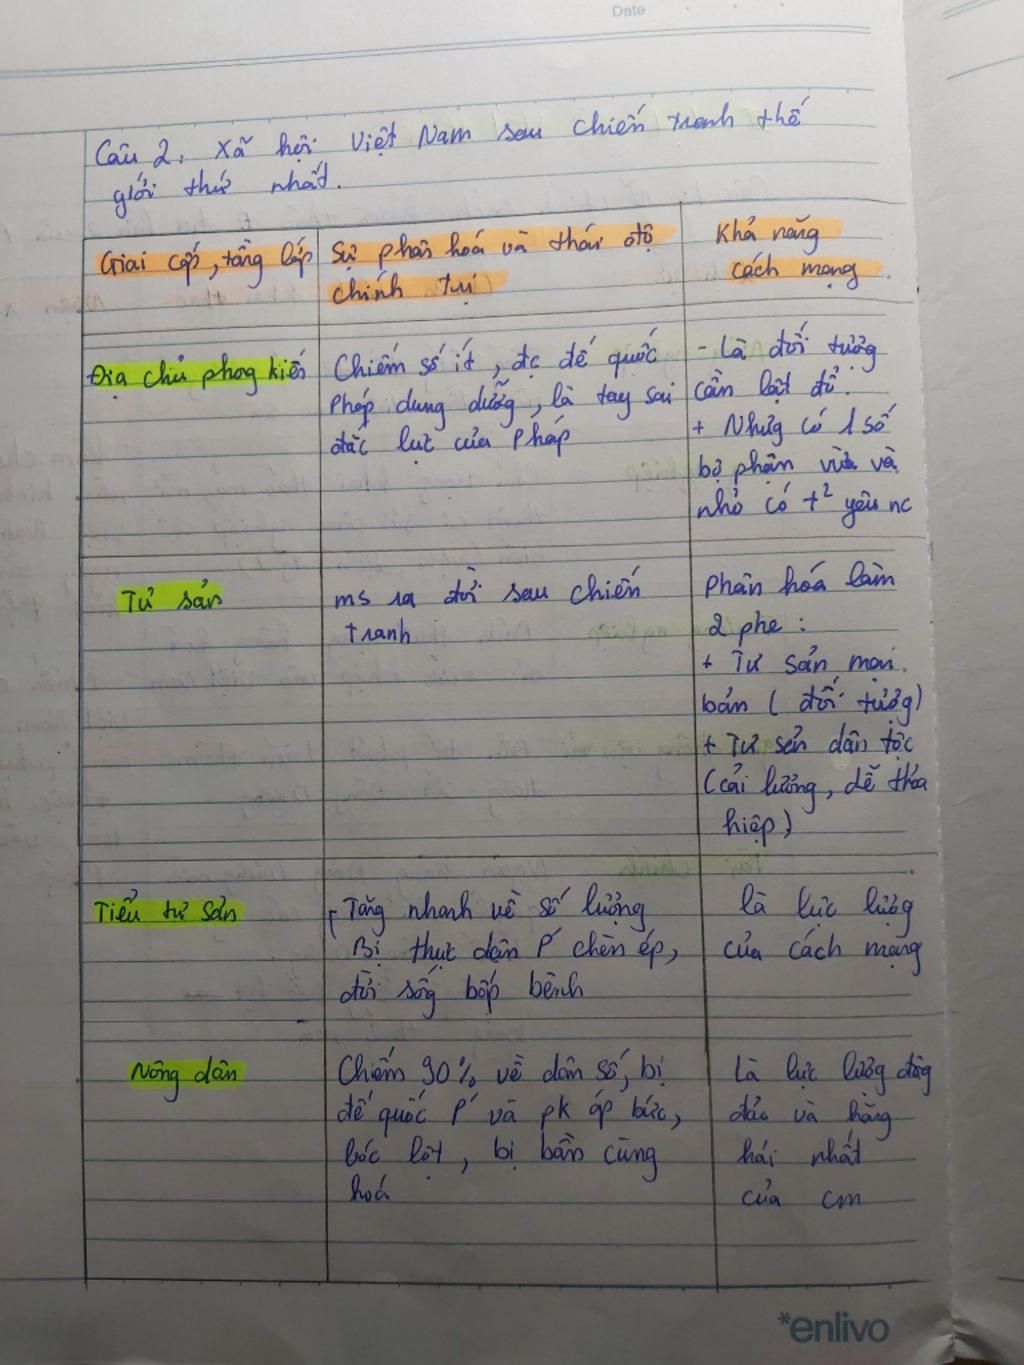 Date
Câu 2. Xã hội Việt Nam sau chiến tranh thế
giới thứ nhất.
Giai cấp, tầng lớp
Sự phân hoá và thái độ
chính trị
Khả năng
cách mạng
Địa chủ phong kiến
Chiếm số ít, đc đế quốc
Pháp dung dưỡng, là tay sai
đắc lực của Pháp
- Là đối tượng
cần lật đổ.
+ Nhưng có 1 số
bộ phận vừa và
nhỏ có t² yêu nc
Tư sản
ms ra đời sau chiến
tranh
Phân hoá làm
2 phe:
+ Tư sản mại
bản (đối tượng)
+ Tư sản dân tộc
(cải lương, dễ thỏa
hiệp)
Tiểu tư sản
Tăng nhanh về số lượng
Bị thực dân P chèn ép,
đời sống bấp bênh
là lực lượng
của cách mạng
Nông dân
Chiếm 90% về dân số, bị
đế quốc P và pk áp bức,
bóc lột, bị bần cùng
hoá
Là lực lượng đông
đảo và hăng
hái nhất
của cm
*enlivo